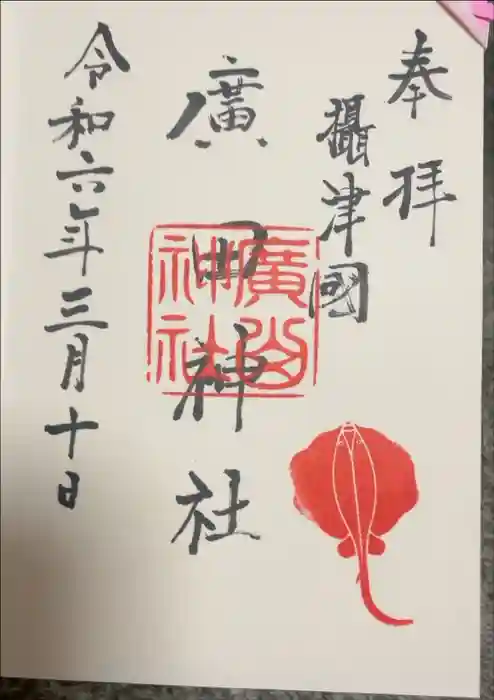 奉拝
攝津國
廣田神社
令和六年三月十日